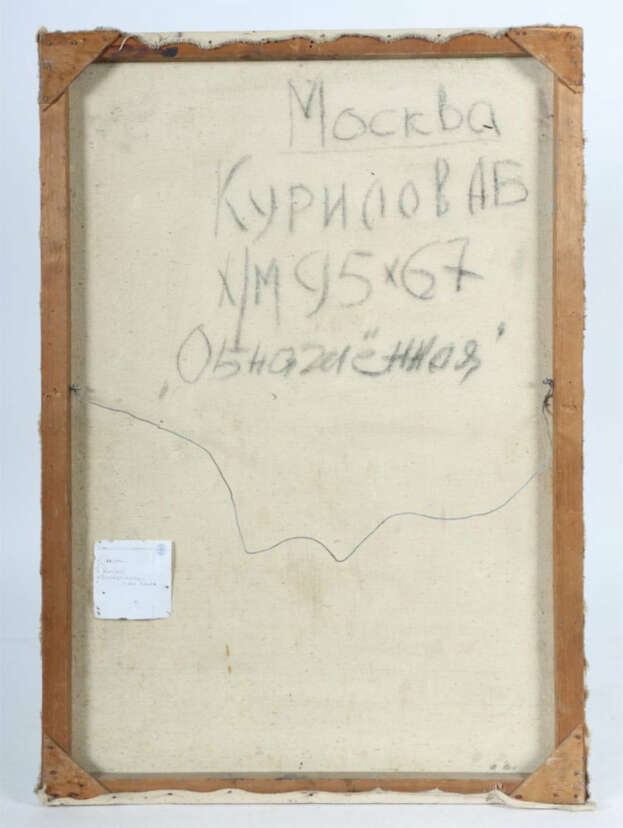 Москва
Курилов АБ
х/м 95×67
"Обнажённая"